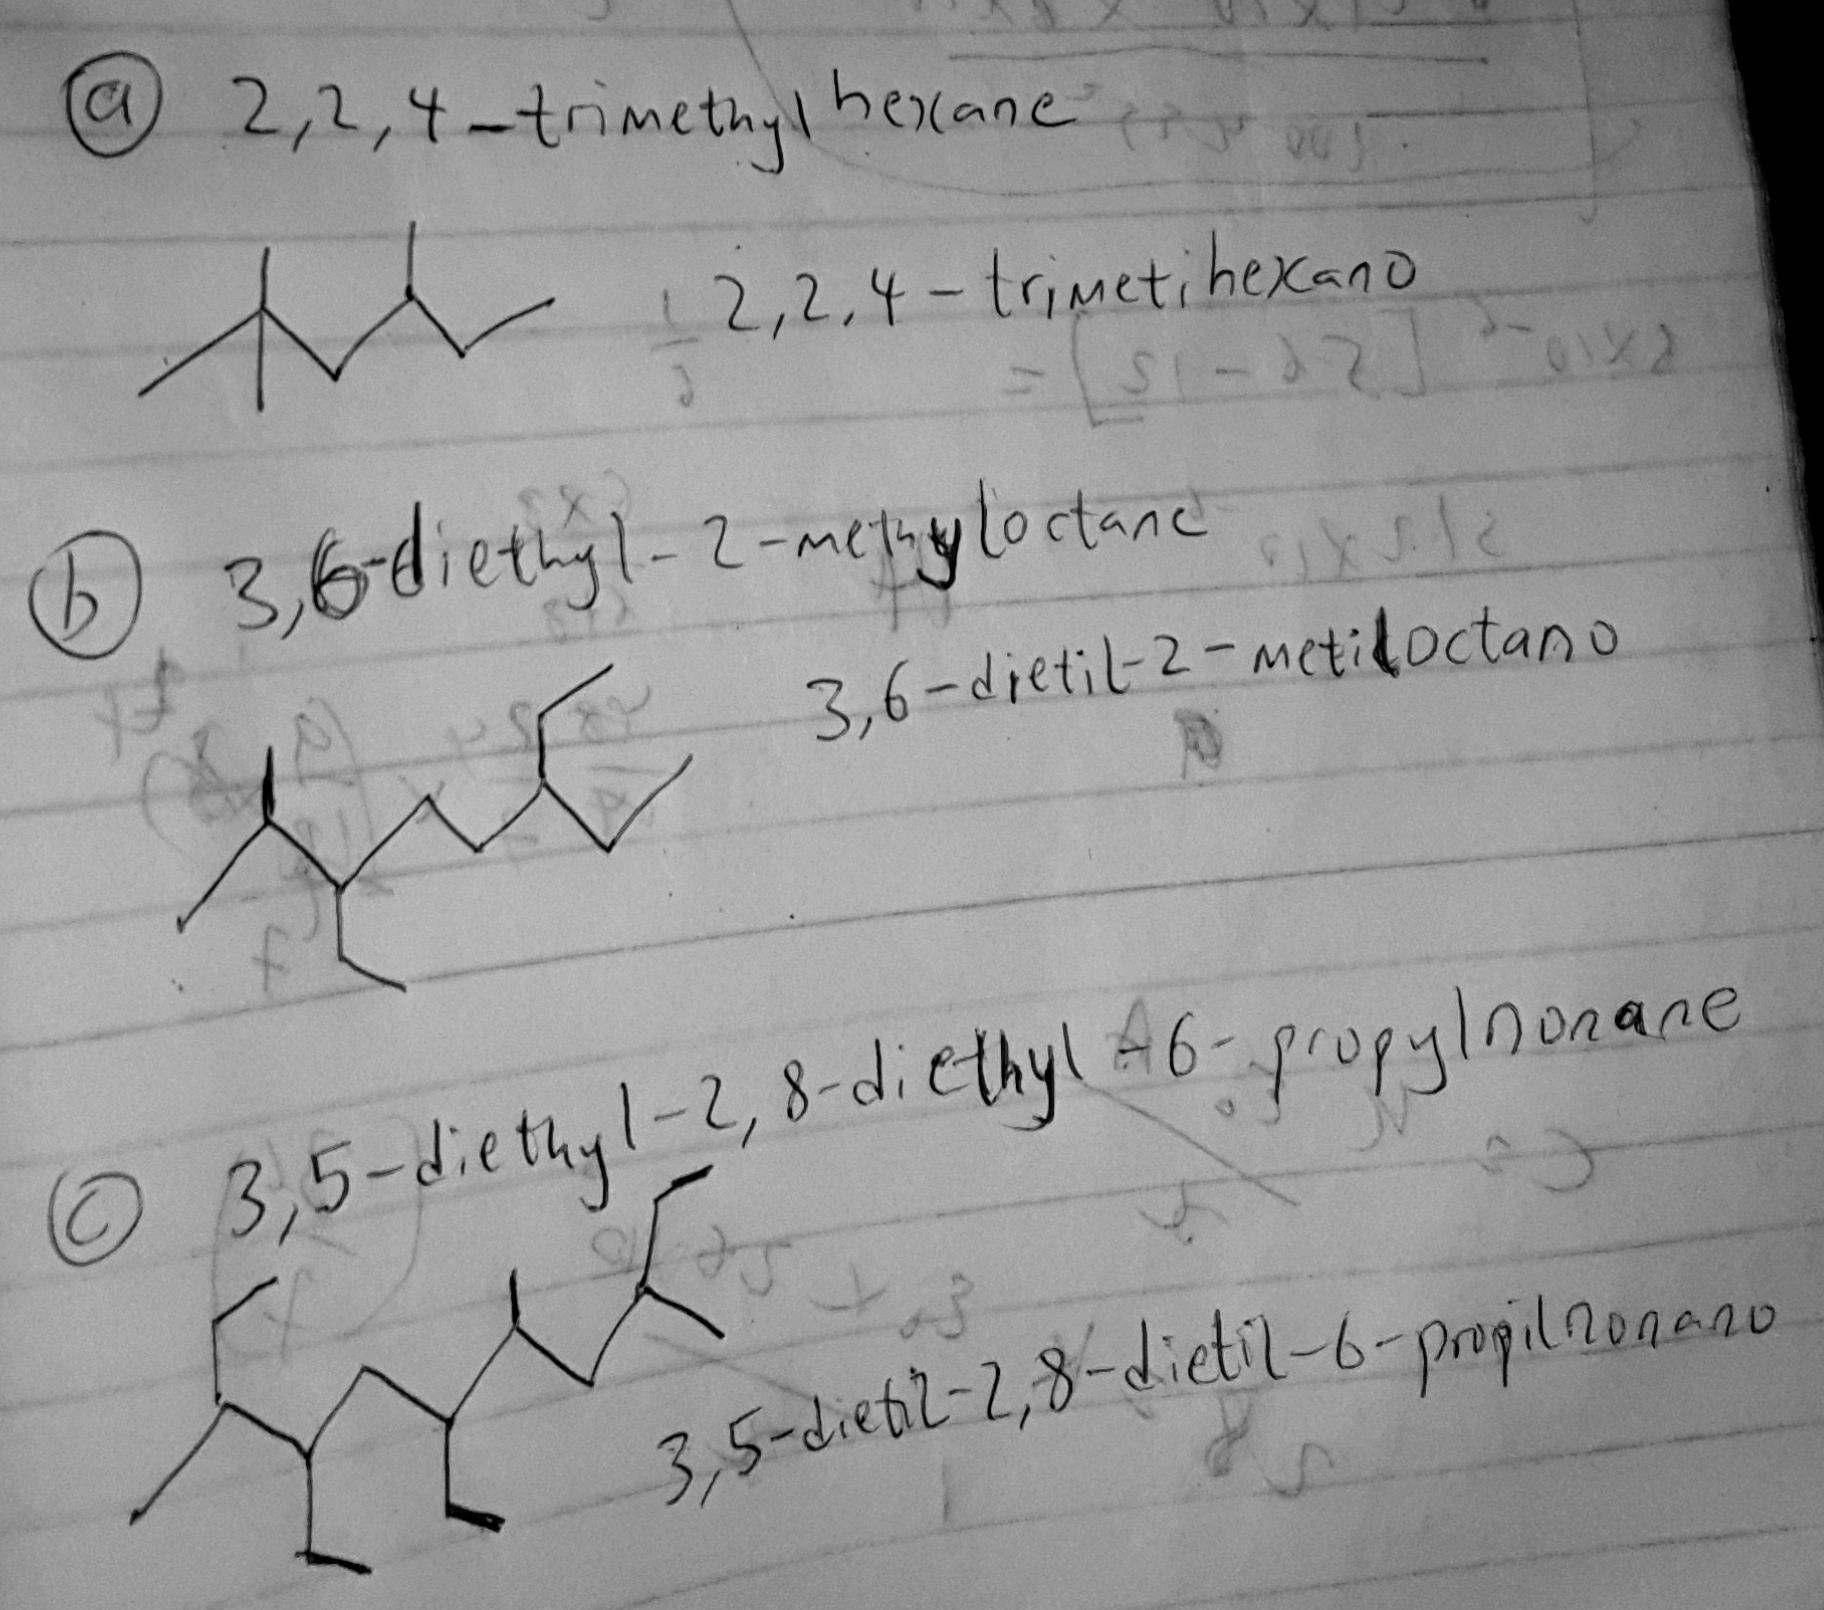 a 2,2,4-trimethylhexane
2,2,4-trimetihexano
b 3,6-diethyl-2-methyloctane
3,6-dietil-2-metiloctano
c 3,5-diethyl-2,8-diethyl-6-propylnonane
3,5-dietil-2,8-dietil-6-propilnonano